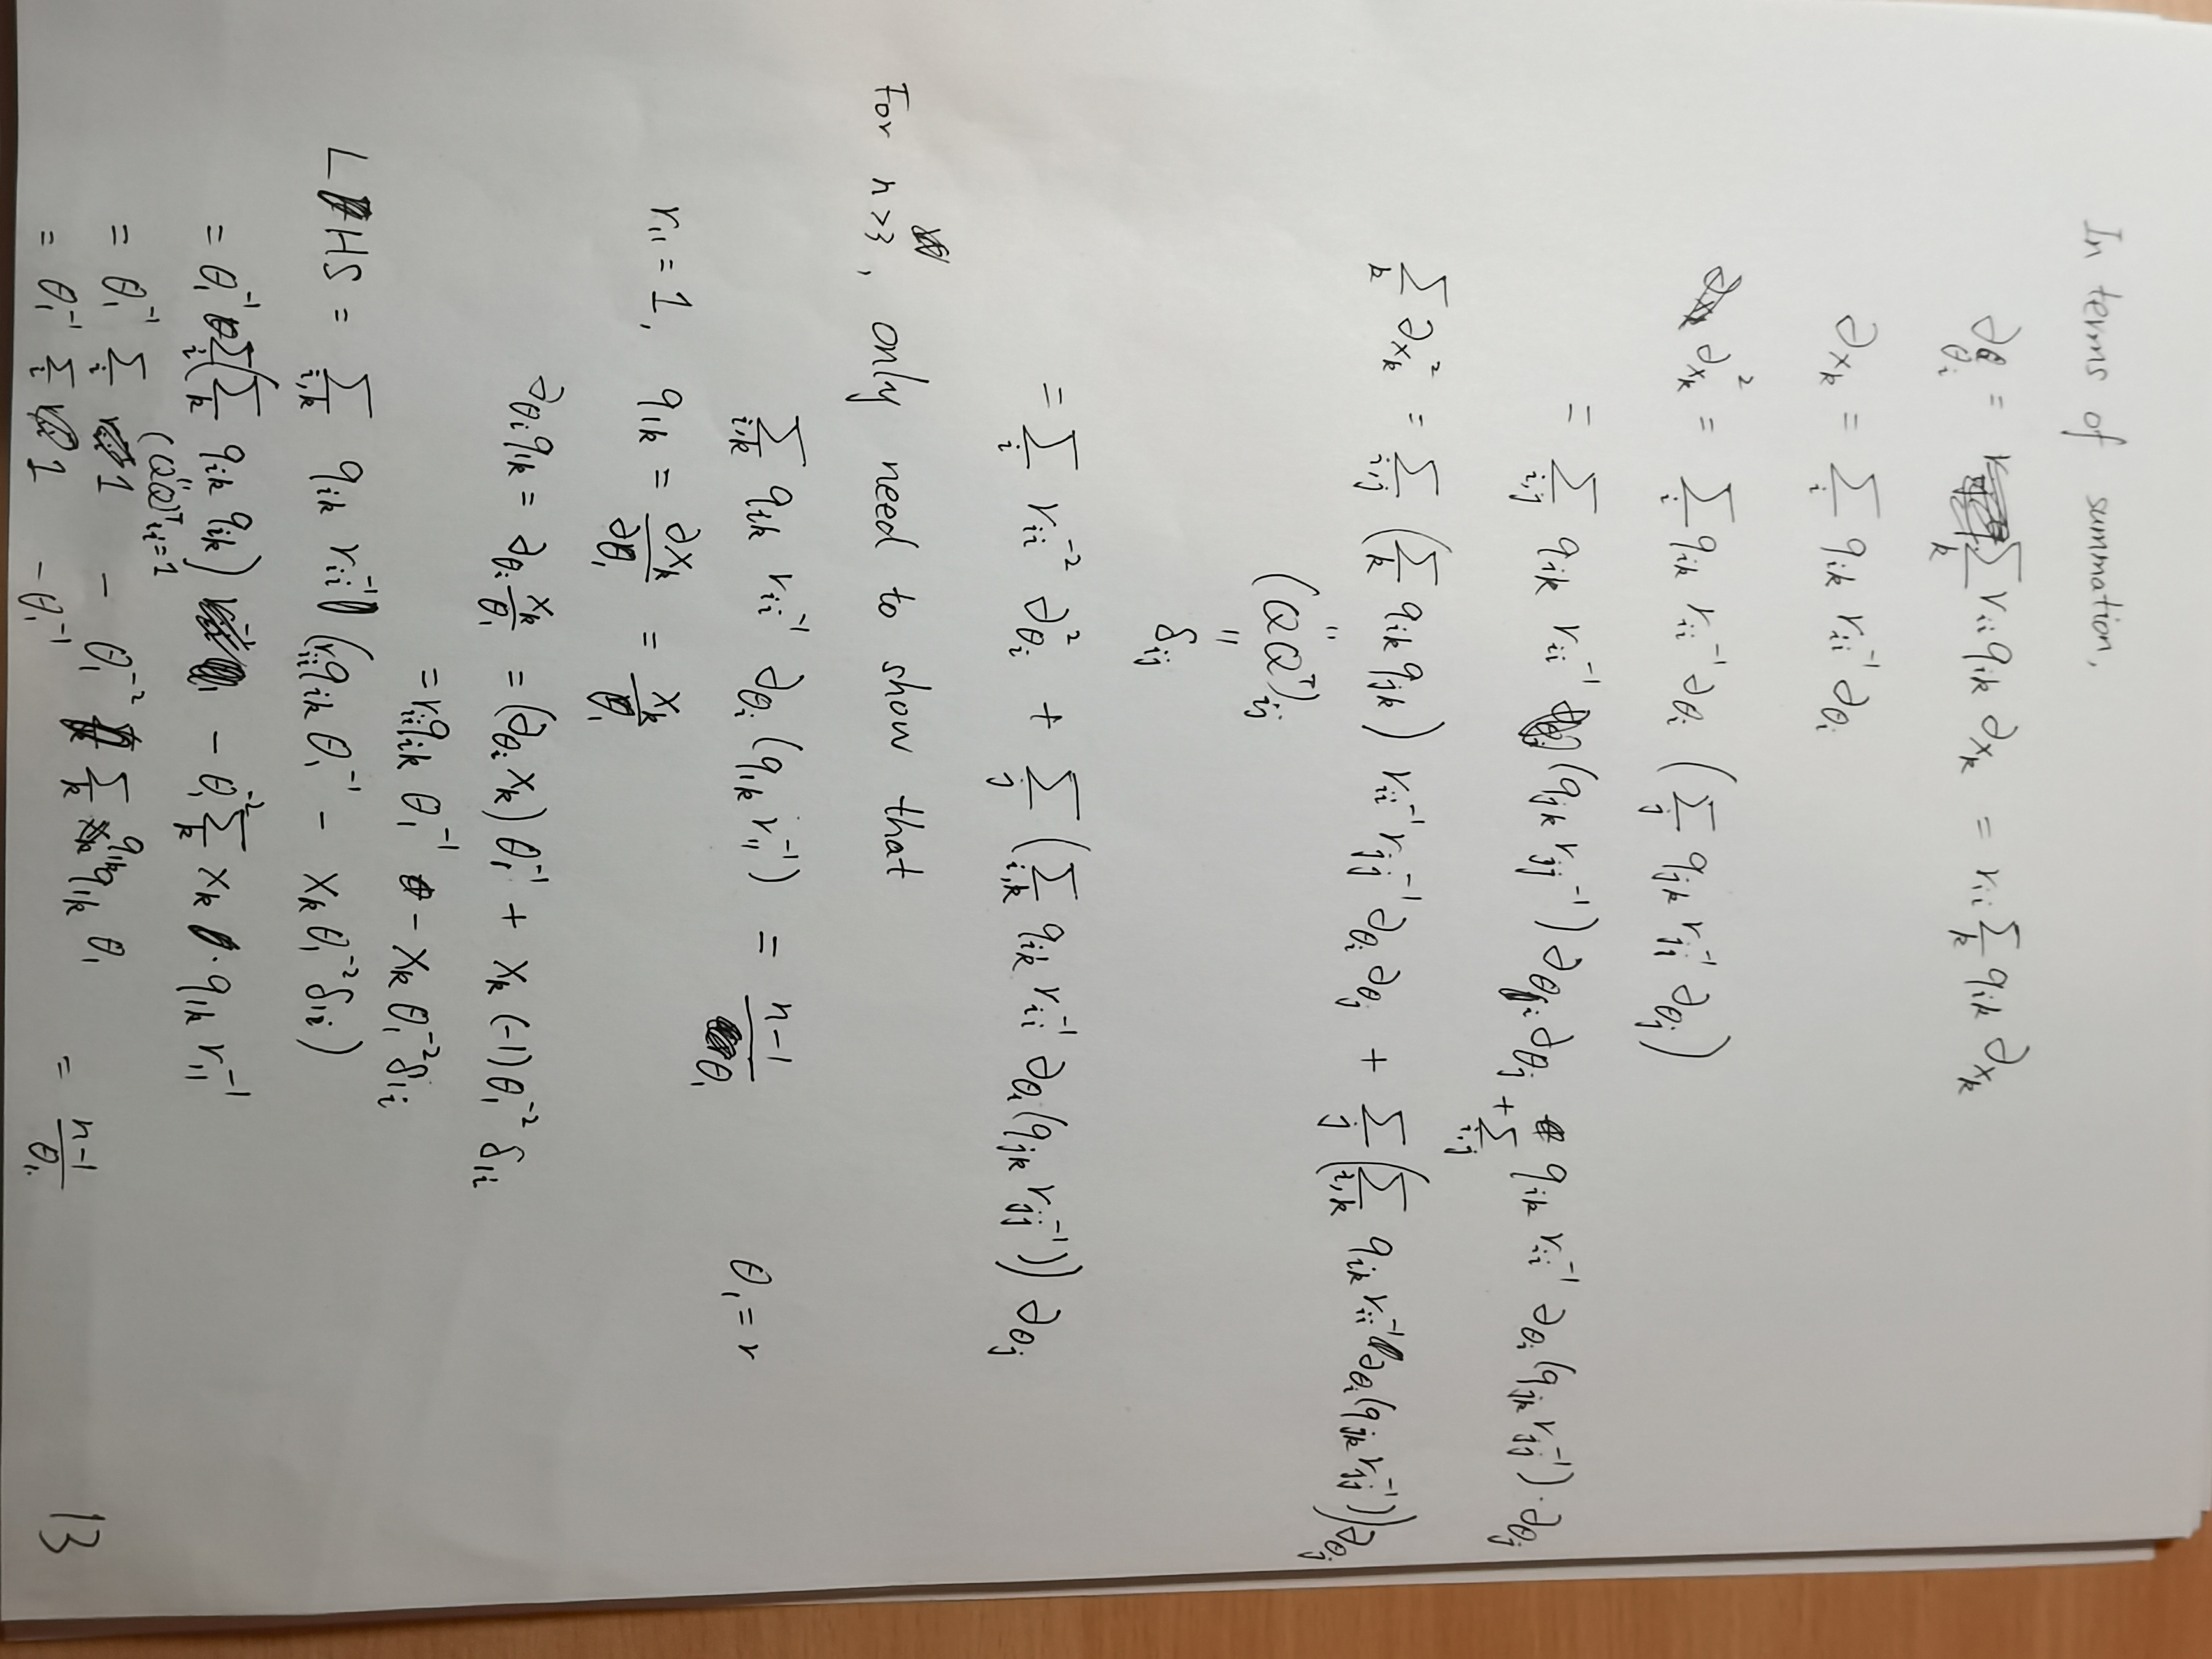 In terms of summation,
∂_θᵢ = Σ_k r_ii q_ik ∂_x_k = r_ii Σ_k q_ik ∂_x_k
∂_x_k = Σ_i q_ik r_ii⁻¹ ∂_θᵢ
∂²_x_k = Σ_i q_ik r_ii⁻¹ ∂_θᵢ (Σ_j q_jk r_jj⁻¹ ∂_θⱼ)
= Σ_i,j q_ik r_ii⁻¹ (q_jk r_jj⁻¹) ∂_θᵢ ∂_θⱼ + Σ_i,j q_ik r_ii⁻¹ ∂_θᵢ(q_jk r_jj⁻¹)·∂_θⱼ
Σ_k ∂²_x_k = Σ_i,j (Σ_k q_ik q_jk) r_ii⁻¹ r_jj⁻¹ ∂_θᵢ ∂_θⱼ + Σ_j (Σ_i,k q_ik r_ii⁻¹ ∂_θᵢ(q_jk r_jj⁻¹)) ∂_θⱼ
=
(QQᵀ)_ij
=
δ_ij
= Σ_i r_ii⁻² ∂²_θᵢ + Σ_j (Σ_i,k q_ik r_ii⁻¹ ∂_θᵢ(q_jk r_jj⁻¹)) ∂_θⱼ
For n>3, only need to show that
Σ_i,k q_ik r_ii⁻¹ ∂_θᵢ(q_1k r_11⁻¹) = (n-1)/θ₁ θ₁ = r
r_11 = 1, q_1k = ∂x_k/∂θ₁ = x_k/θ₁
∂_θᵢ q_1k = ∂_θᵢ x_k/θ₁ = (∂_θᵢ x_k) θ₁⁻¹ + x_k (-1) θ₁⁻² δ_1i
= r_ii q_ik θ₁⁻¹ - x_k θ₁⁻² δ_1i
LHS = Σ_i,k q_ik r_ii⁻¹ (r_ii q_ik θ₁⁻¹ - x_k θ₁⁻² δ_1i)
= θ₁⁻¹ Σ_i (Σ_k q_ik q_ik) - θ₁⁻² Σ_k x_k · q_1k r_11⁻¹
=
(QQ)ᵀ_ii = 1
= θ₁⁻¹ Σ_i 1 - θ₁⁻² Σ_k q_1k q_1k θ₁
= θ₁⁻¹ Σ_i 1 - θ₁⁻¹ = (n-1)/θ₁
13